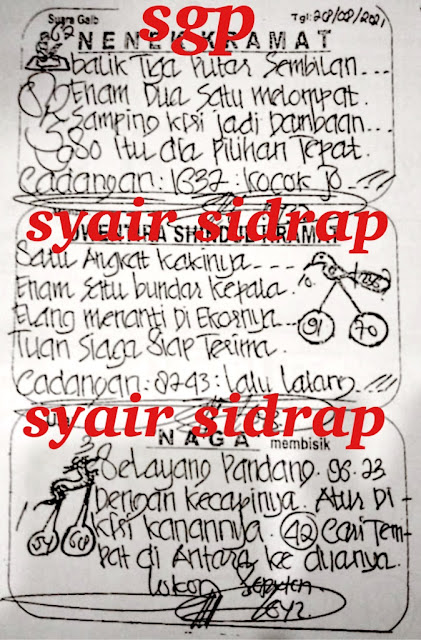 Suara Gaib Tgl: 28/02/2021
sgp
NENEK KRAMAT
balik Tiga Putar Sembilan...
Enam Dua Satu melompat.
Samping kisi jadi Dambaan...
80 Itu dia Pilihan Tepat.
Cadangan: 1637: kocok Jo
syair sidrap
Satu Angkat kakinya...
Enam Satu bundar kepala
Elang menanti Di Ekornya...
Tuan Siaga Siap Terima.
91 70
Cadangan: 8743: Lalu Lalang
syair sidrap
NAGA membisik
Selayang Pandang. 96.23
Dengan kecapinya Atur Di-
kisi kanannya. 42 Cari Tem-
pat di Antara ke duanya.